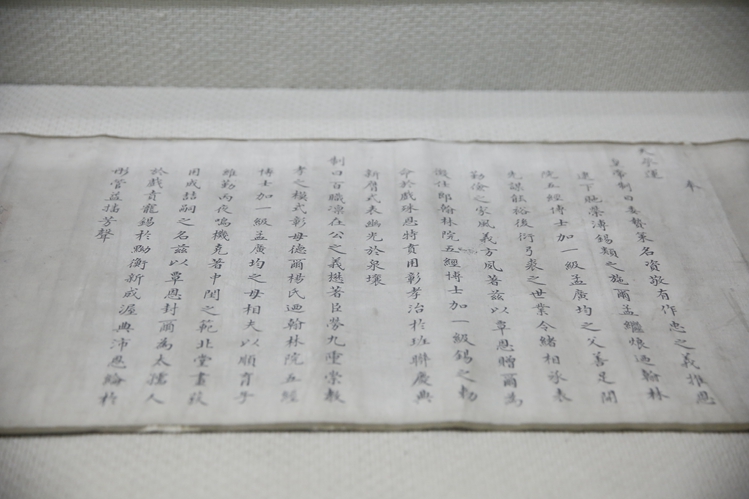 奉
天承運
皇帝制曰委質策名資敬有作忠之義推恩
逮下馳榮溥錫類之施爾孟繼烺迺翰林
院五經博士加一級孟廣均之父善足開
先謀能裕後衍弓裘之世業令緒相承表
勤儉之家風義方夙著茲以覃恩贈爾為
徵仕郎翰林院五經博士加一級錫之勅
命於戲殊恩特賁用彰孝治於班聯慶典
新膺式表幽光於泉壤
制曰百職凜在公之義懋著臣勞九重崇教
孝之模式彰母德爾楊氏迺翰林院五經
博士加一級孟廣均之母相夫以順育子
維勤丙夜鳴機克著中閨之範北堂畫荻
用成喆嗣之名茲以覃恩封爾為太孺人
於戲賁寵錫於珈衡新咸渥典沛恩綸於
彤管益揚芳聲